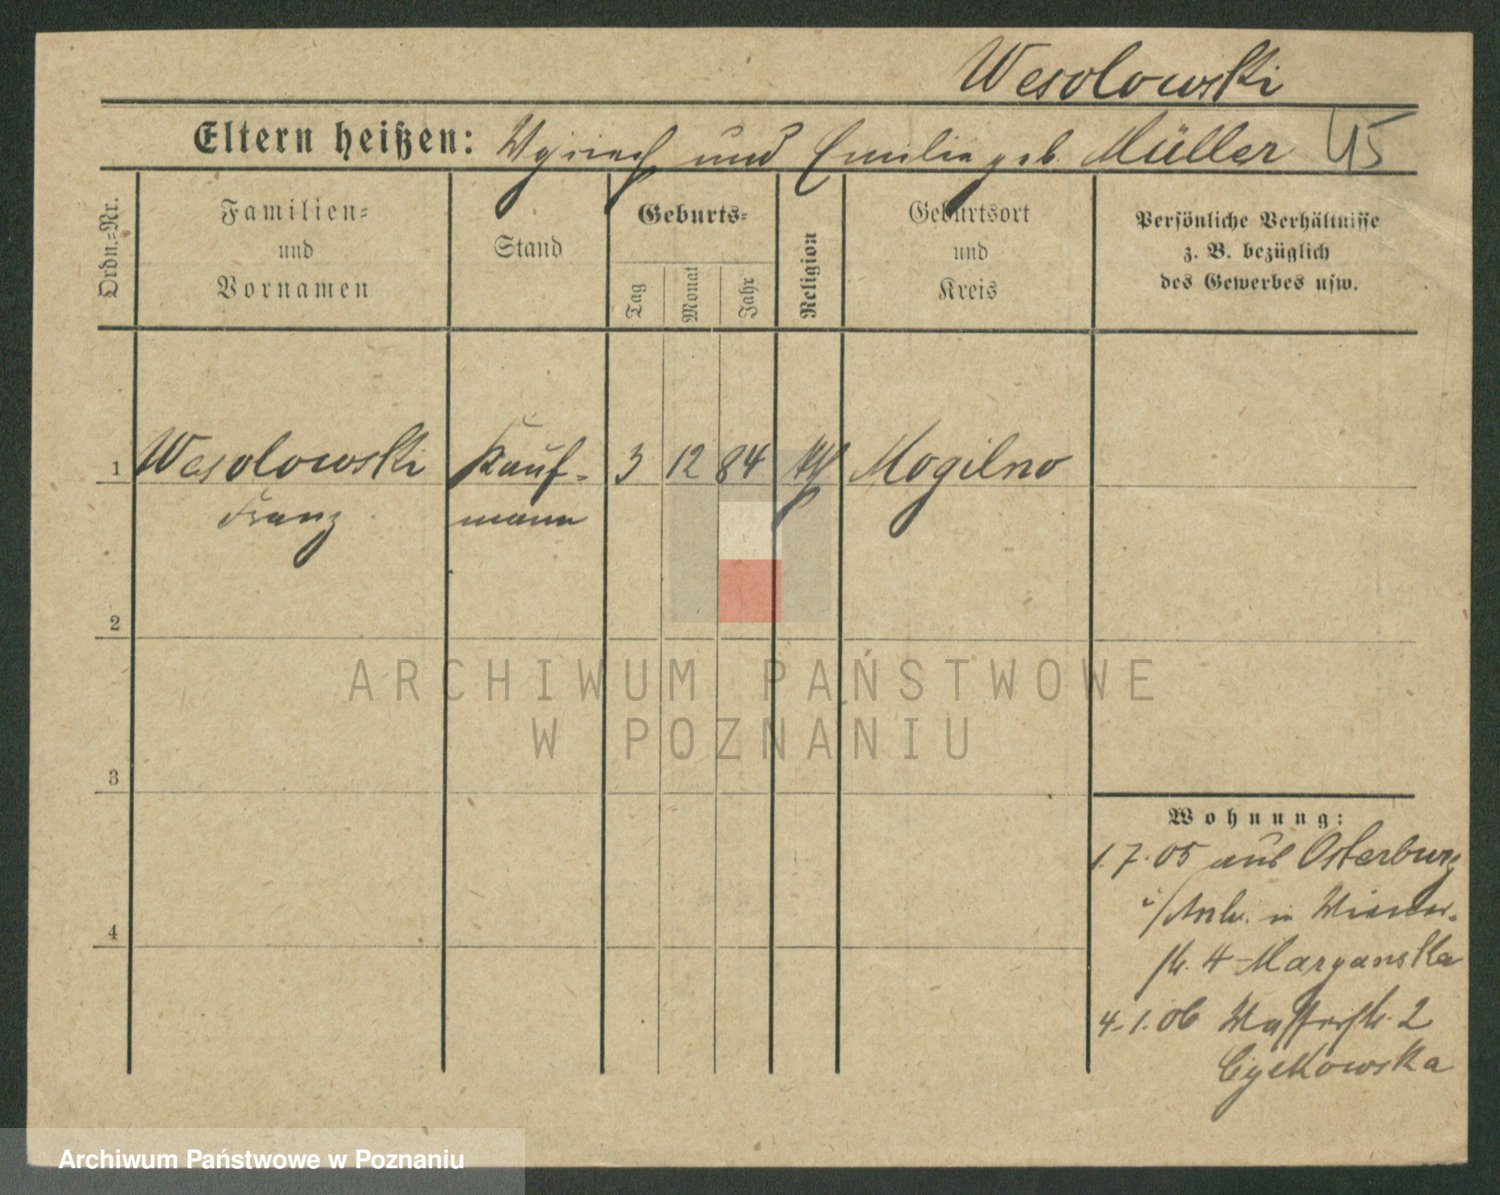 Wesolowski
Eltern heißen: und Emilie geb. Müller 45
Ordn.-Nr.
Familien-
und
Vornamen
Stand
Geburts-
Tag
Monat
Jahr
Religion
Geburtsort
und
Kreis
Persönliche Verhältnisse
z. B. bezüglich
des Gewerbes usw.
1 Wesolowski Kauf- 3 12 84 Mogilno
Franz mann
2
ARCHIWUM PAŃSTWOWE
W POZNANIU
3
Wohnung:
1.7.05 aus Osterburg
in Wiener-
str. 4 Maryanska
4
4.1.06 Wasserstr. 2
Archiwum Państwowe w Poznaniu